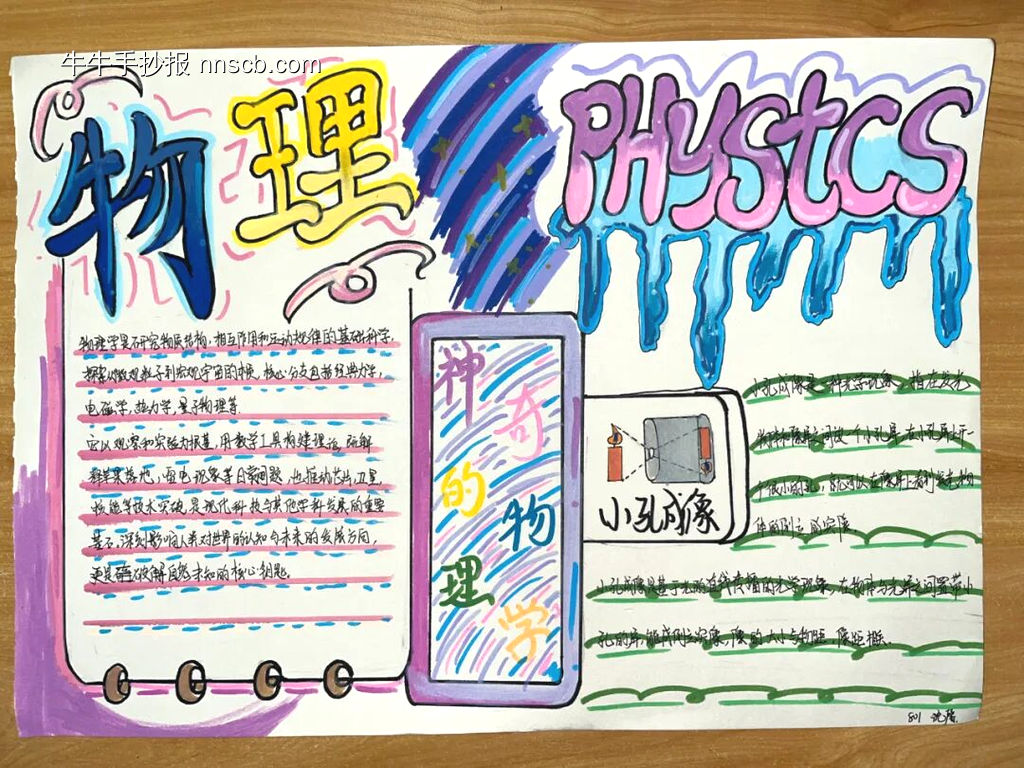 牛牛手抄报 nnscb.com
物理
PHYStCS
物理学是研究物质结构，相互作用和运动规律的基础科学，
探索从微观粒子到宏观宇宙的 核心分支包括经典力学，
电磁学，热力学，量子物理等.
它以观察和实验为根基，用数学工具构建理论，
释苹果落地，雷电现象等日常问题，也推动芯片，卫星
核能等技术突破，是现代科技与其他学科发展的重要
基石，深刻影响人类对世界的认知与未来的发展方向，
更是 破解自然未知的核心钥匙.
神奇的物理学
小孔成像
小孔成像是一种光学现象，指在发光
物体和屏之间放一个小孔屏，在小孔屏上开一
个很小的孔，
体的倒立的实像.
小孔成像是基于光沿直线传播的光学现象，在物体与光屏之间置带小
孔的屏，能成倒立实像，像的大小与物距，像距相关.
801